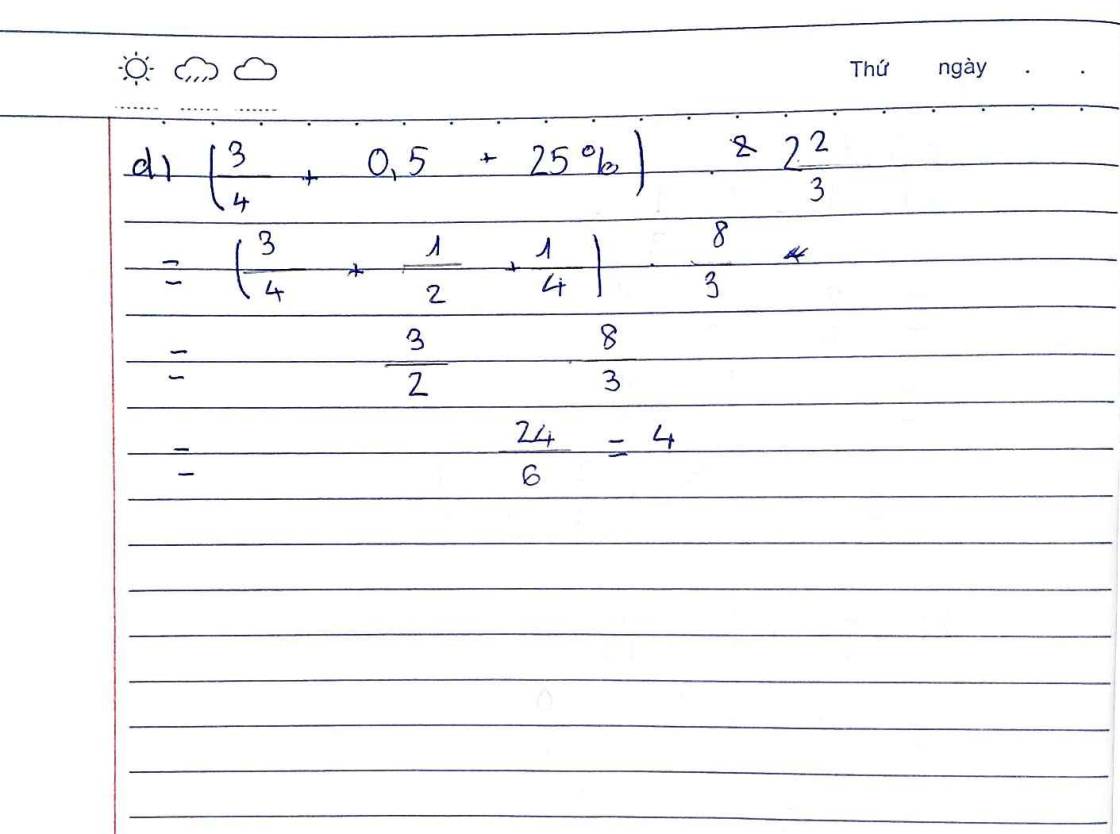 Thứ ngày . .
d) (3/4 + 0,5 + 25%) . 2 2/3
= (3/4 + 1/2 + 1/4) . 8/3
= 3/2 . 8/3
= 24/6 = 4